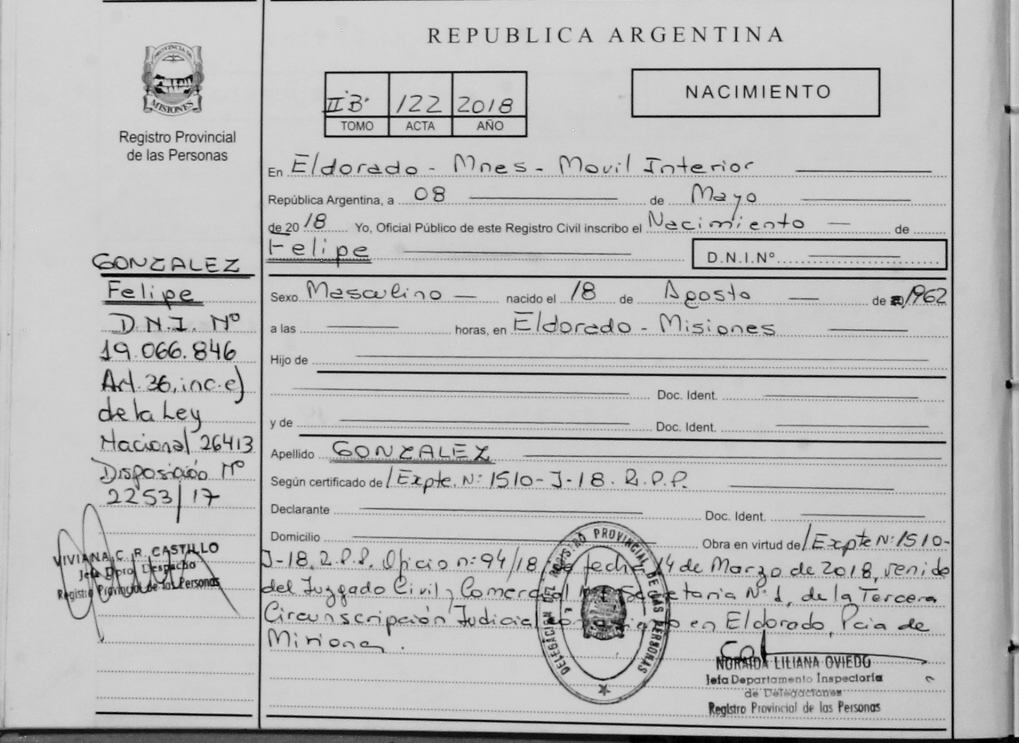 REPUBLICA ARGENTINA
PROVINCIA DE
MISIONES
Registro Provincial
de las Personas
IIºBº 122 2018
TOMO ACTA AÑO
NACIMIENTO
En Eldorado - Mnes - Movil Interior
República Argentina, a 08 de Mayo
de 2018 Yo, Oficial Público de este Registro Civil inscribo el Nacimiento de
Felipe D.N.I.Nº
Sexo Masculino nacido el 18 de Agosto de 1962
a las horas, en Eldorado - Misiones
Hijo de
Doc. Ident.
y de Doc. Ident.
Apellido GONZALEZ
Según certificado de Expte. Nº 1510-J-18. R.P.P.
Declarante Doc. Ident.
Domicilio Obra en virtud de Expte Nº 1510-
J-18. R.P.P. Oficio nº 94/18 de fecha 14 de Marzo de 2018, venido
del Juzgado Civil y Comercial Secretaria Nº 1, de la Tercera
Circunscripción Judicial en Eldorado, Pcia de
Misiones.
GONZALEZ
Felipe
D.N.I. Nº
19.066.846
Art. 36, inc. e)
de la Ley
Nacional 26413
Disposición Nº
2253/17
VIVIANA C. R. CASTILLO
Jefa Dpto. Despacho
Registro Provincial de las Personas
DELEGACION DEL REGISTRO PROVINCIAL DE LAS PERSONAS
NORAIDA LILIANA OVIEDO
Jefa Departamento Inspectoría
de Delegaciones
Registro Provincial de las Personas